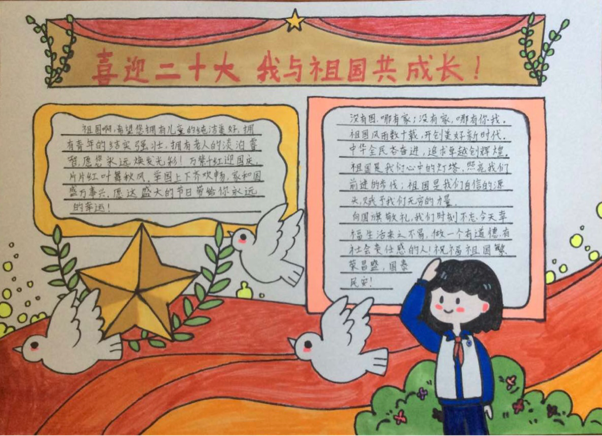 喜迎二十大 我与祖国共成长！
祖国啊，希望您拥有儿童的纯洁美好，拥
有青年的结实强壮，拥有老人的淡泊
愿您永远焕发光彩！万紫千红迎国庆，
片片红叶舞秋风，举国上下齐欢畅，家和国
盛万事兴，愿这盛大的节日带给你永远
的幸运！
没有国，哪有家；没有家，哪有你我。
祖国风雨数十载，开创美好新时代。
中华全民态奋进，追求卓越创辉煌。
祖国是我们心中的灯塔，照亮我们
前进的路线；祖国是我们自信的源
泉，赋予我们无穷的力量。
向国旗敬礼，我们时刻不忘，今天幸
福生活来之不易，做一个有道德、有
社会责任感的人！祝福祖国繁
荣昌盛，国泰
民安！